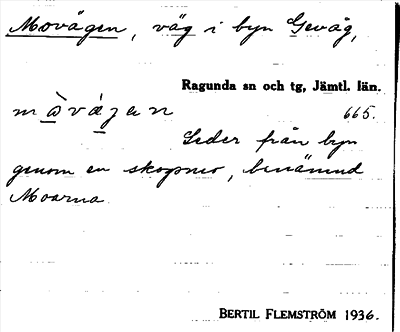 Movägen, väg i byn Gevåg,
Ragunda sn och tg, Jämtl. län.
665.
Leder från byn
genom en skogmo, benämnd
Moarna
BERTIL FLEMSTRÖM 1936.